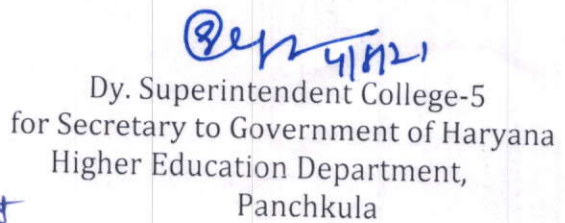 4/8/21
Dy. Superintendent College-5
for Secretary to Government of Haryana
Higher Education Department,
Panchkula